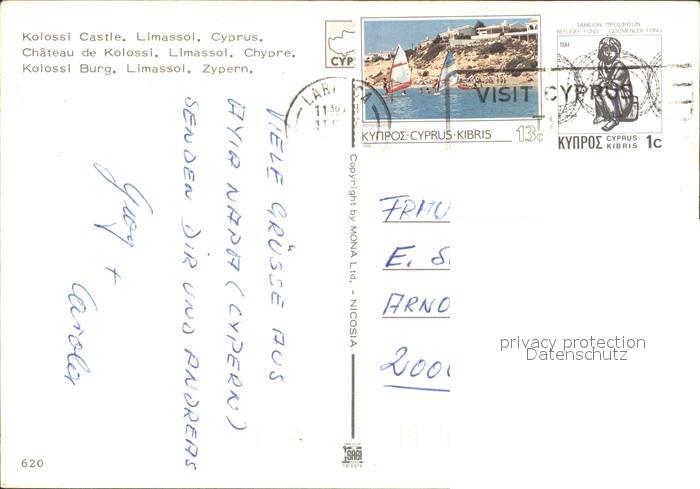 Kolossi Castle, Limassol, Cyprus.
Château de Kolossi, Limassol, Chypre.
Kolossi Burg, Limassol, Zypern.
VIELE GRÜSSE AUS
AYIR NAPA (CYPERN)
SENDEN DIR UND ANDREAS
+
620
Copyright by MONA Ltd. - NICOSIA
SAGI
CYP
LARNACA
11 30
VISIT CYPRUS
ΚΥΠΡΟΣ·CYPRUS·KIBRIS 13c
ΤΑΜΕΙΟΝ ΠΡΟΣΦΥΓΩΝ
REFUGEE FUND GÖÇMENLER FONU
1984
ΚΥΠΡΟΣ CYPRUS KIBRIS 1c
FRAU
E. S
ARNO
2000
privacy protection
Datenschutz